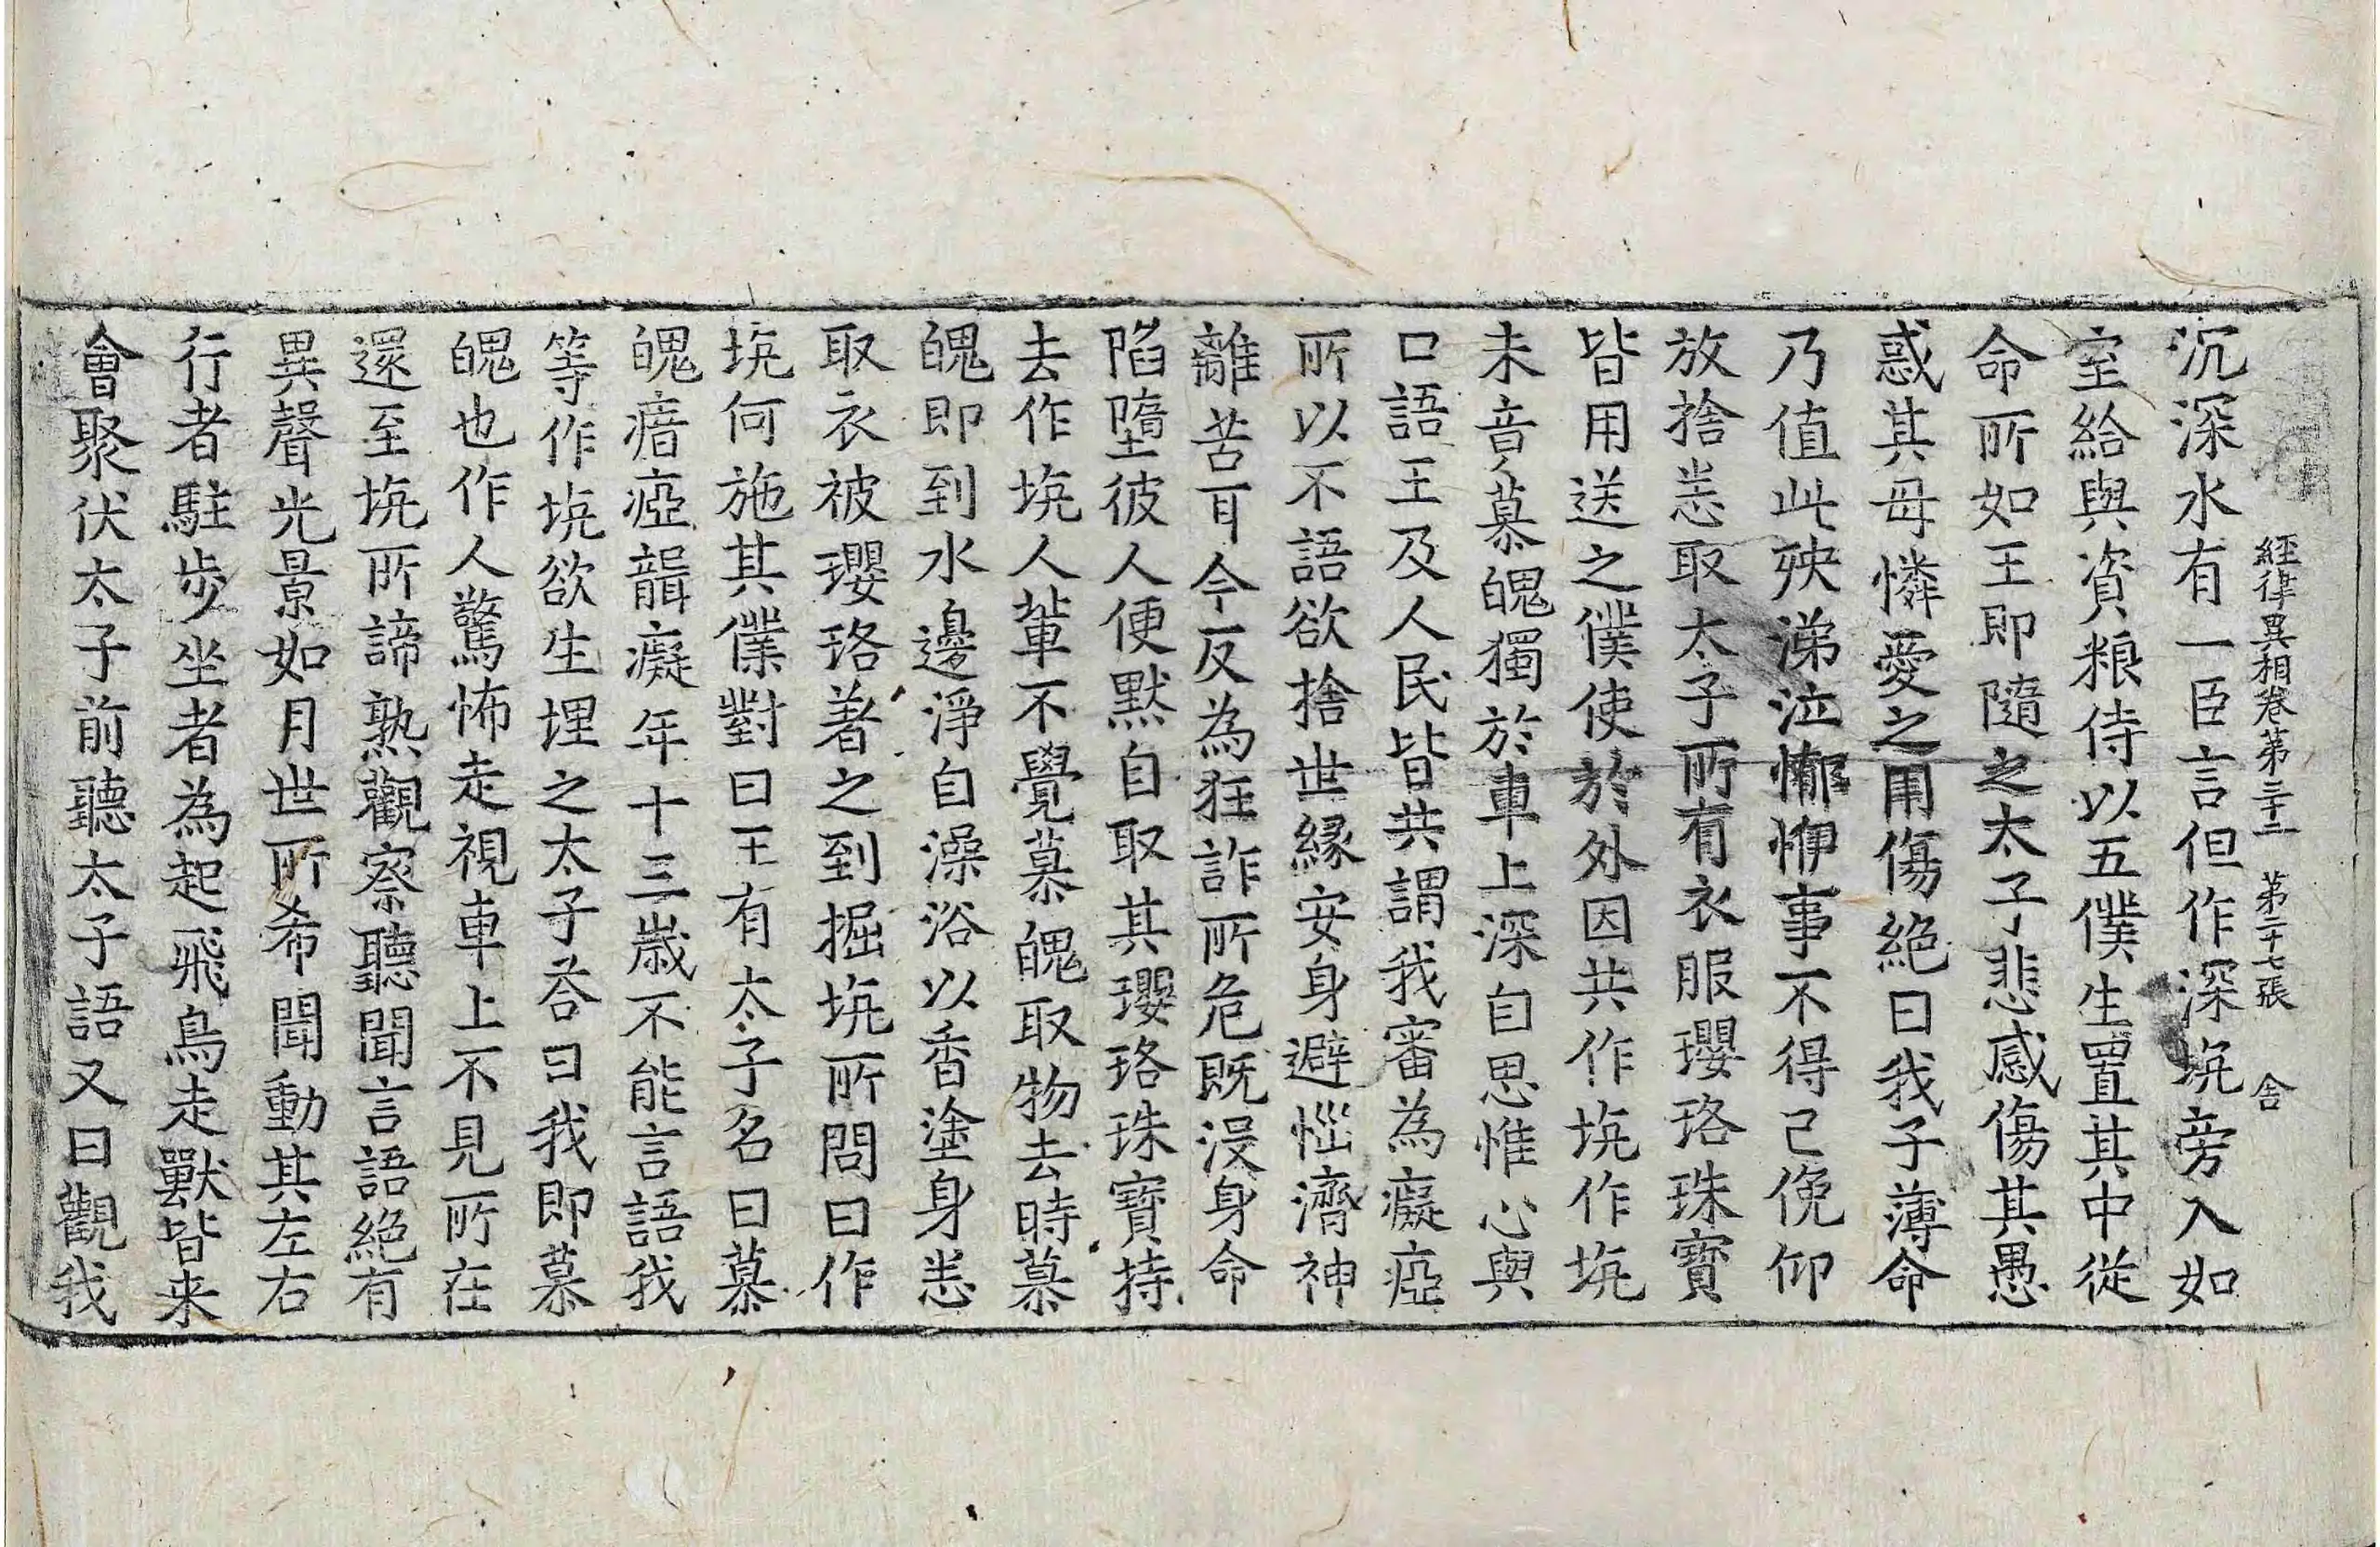 經律異相卷第三十二 第二十七張 舍
沉深水有一臣言但作深坑旁入如
室給與資粮侍以五僕生置其中從
命所如王即隨之太子悲感傷其愚
惑其母憐愛之用傷絶曰我子薄命
乃值此殃涕泣慚惸事不得已俛仰
放捨恙取太子所有衣服瓔珞珠寶
皆用送之僕使於外因共作坑作坑
未音慕魄獨於車上深自思惟心與
口語王及人民皆共謂我審為癡瘂
所以不語欲捨世縁安身避惱濟神
離苦耳今反為狂詐所危既没身命
陷墮彼人便默自取其瓔珞珠寶持
去作坑人輩不覺慕魄取物去時慕
魄即到水邊淨自澡浴以香塗身恙
取衣被瓔珞著之到掘坑所問曰作
坑何施其僕對曰王有太子名曰慕
魄瘖瘂聾癡年十三歳不能言語我
等作坑欲生埋之太子荅曰我即慕
魄也作人驚怖走視車上不見所在
還至坑所諦熟觀察聽聞言語絶有
異聲光景如月世所希聞動其左右
行者駐步坐者為起飛鳥走獸皆来
會聚伏太子前聽太子語又曰觀我